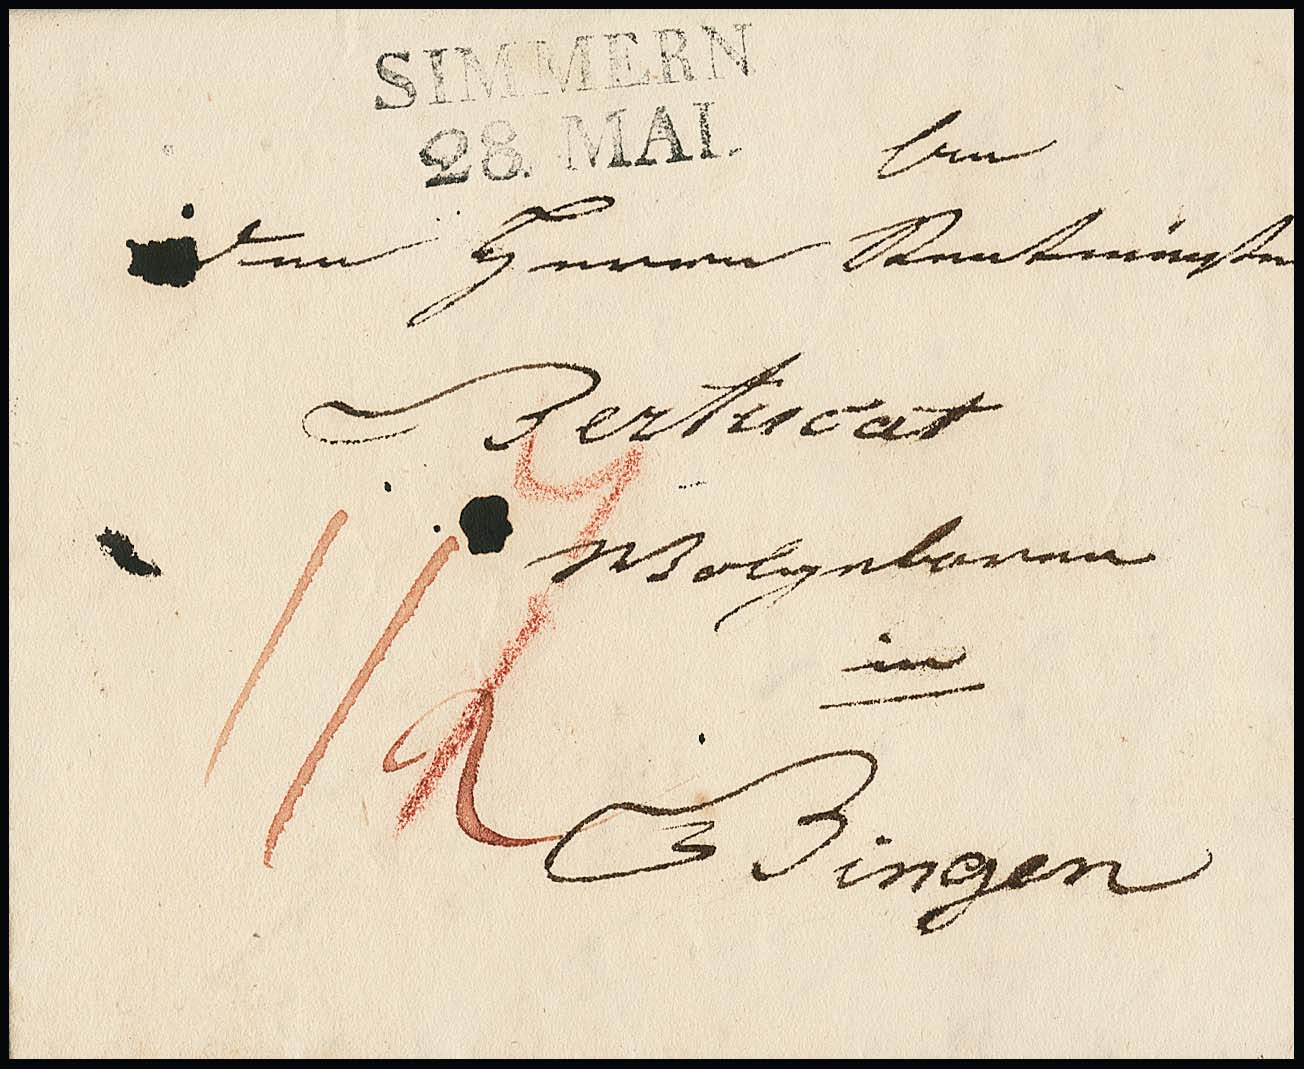 SIMMERN
28. MAI.
den Herrn Rentmeister
Bertucat
Wolgeboren
in
Bingen